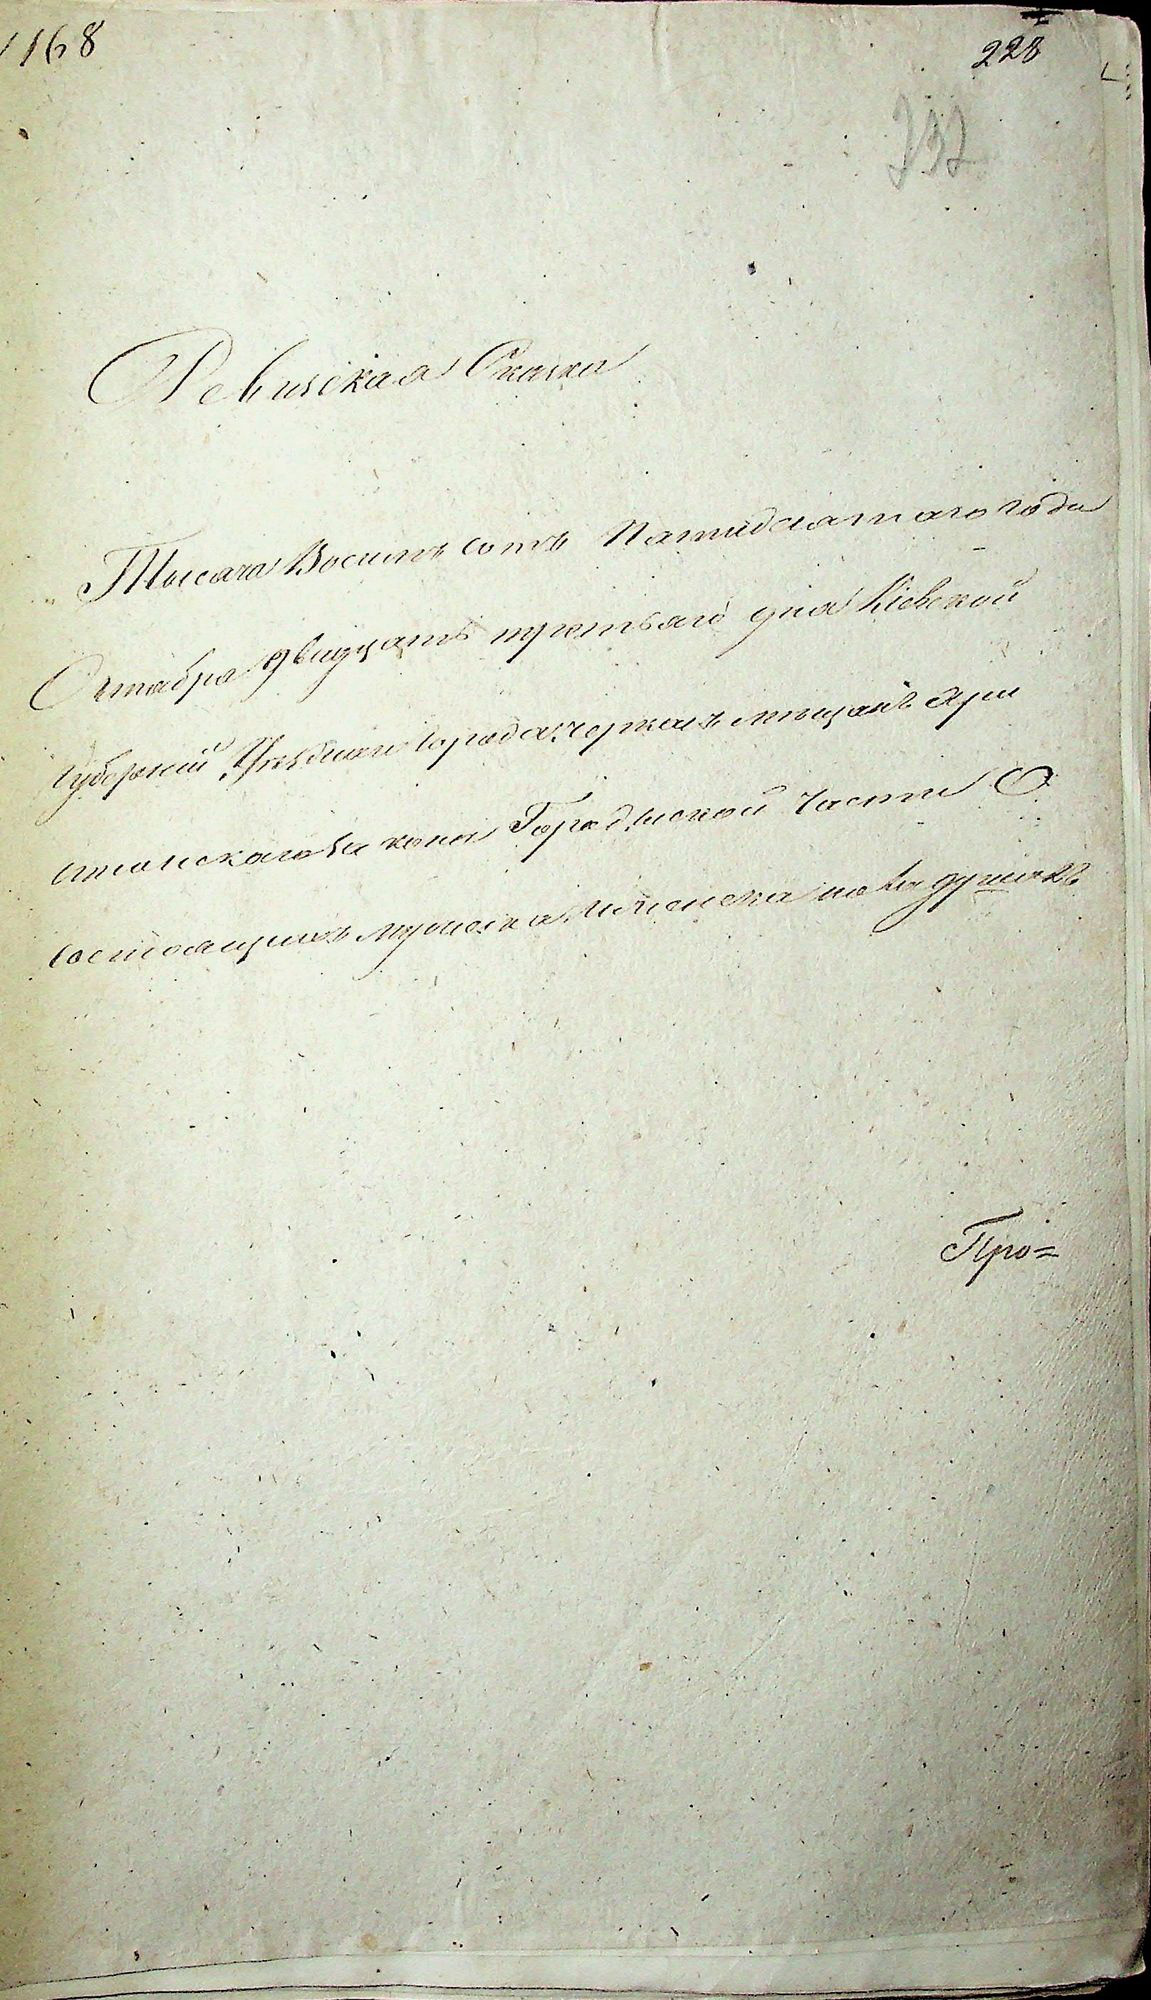 168
228
232
Ревизская Сказка
Тысяча Восемь сотъ Пятидесятаго года
Октября двадцать третьяго дня Кіевской
Губерніи Уѣзднаго города Черкасъ мѣщанъ Хри
стіанскаго закона Городской части О
состоящихъ мужеска и женска пола душахъ
Про=